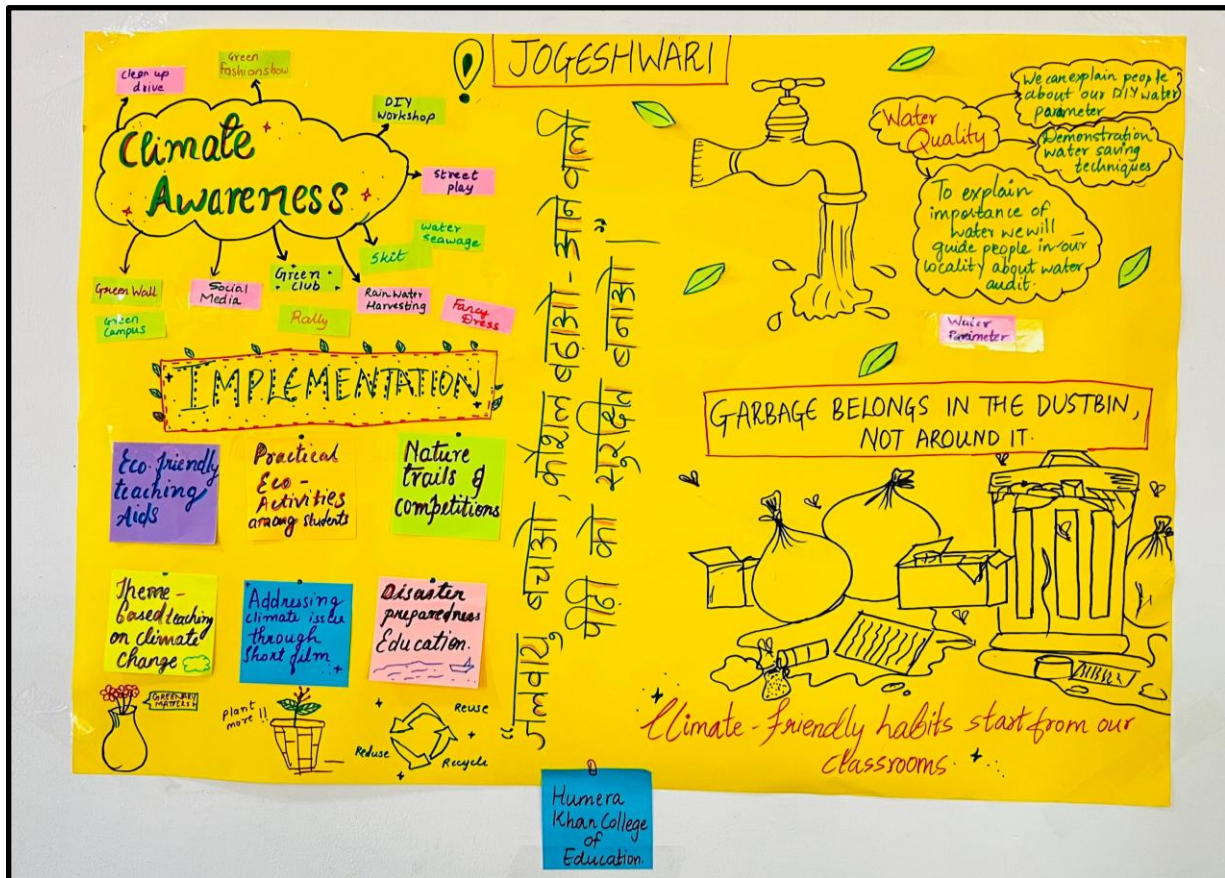 JOGESHWARI
Clean up
drive
Green
Fashionshow
DIY
workshop
Street
play
Climate
Awareness
Water
Seawage
Skit
Green
Club
Rain Water
Harvesting
Fancy
Dress
Rally
Social
Media
Green Wall
Green
Campus
IMPLEMENTATION
Eco-friendly
teaching
Aids
Practical
Eco-
Activities
among students
Nature
trails &
competitions
Theme-
based teaching
on climate
Change
Addressing
climate issue
through
Short film
Disaster
preparedness
Education.
GREENERY
MATTERS
plant
more !!
Reuse
Reduse
Recycle
"जलवायु बचाओ, कौशल बढ़ाओ - आने वाली
पीढ़ी को सुरक्षित बनाओ।"
Water
Quality
We can explain people
about our DIY water
parameter
Demonstration
water saving
techniques
To explain
importance of
water we will
guide people in our
locality about water
audit.
Water
Parimeter
GARBAGE BELONGS IN THE DUSTBIN,
NOT AROUND IT.
Climate-friendly habits start from our
classrooms.
Humera
Khan College
of
Education.